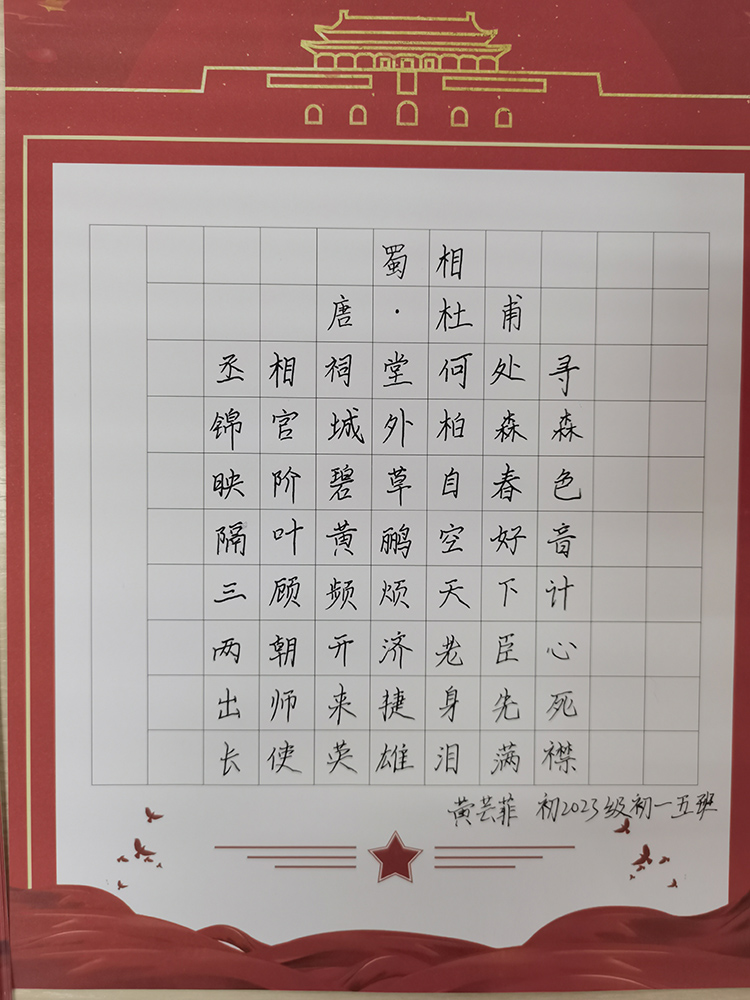 蜀相
唐·杜甫
丞相祠堂何处寻
锦官城外柏森森
映阶碧草自春色
隔叶黄鹂空好音
三顾频烦天下计
两朝开济老臣心
出师未捷身先死
长使英雄泪满襟
黄芸菲 初2023级初一五班